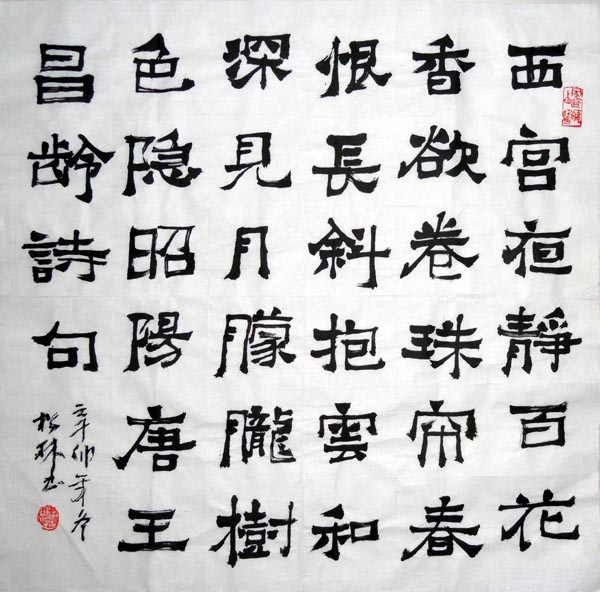 西宫夜靜百花
香欲卷珠帘春
恨長斜抱雲和
深見月朦朧樹
色隐昭陽唐王
昌龄詩句
辛卯年冬
松林书